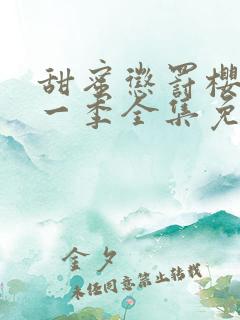 甜蜜懲罰櫻
一季全集免
金夕
未经同意禁止转载